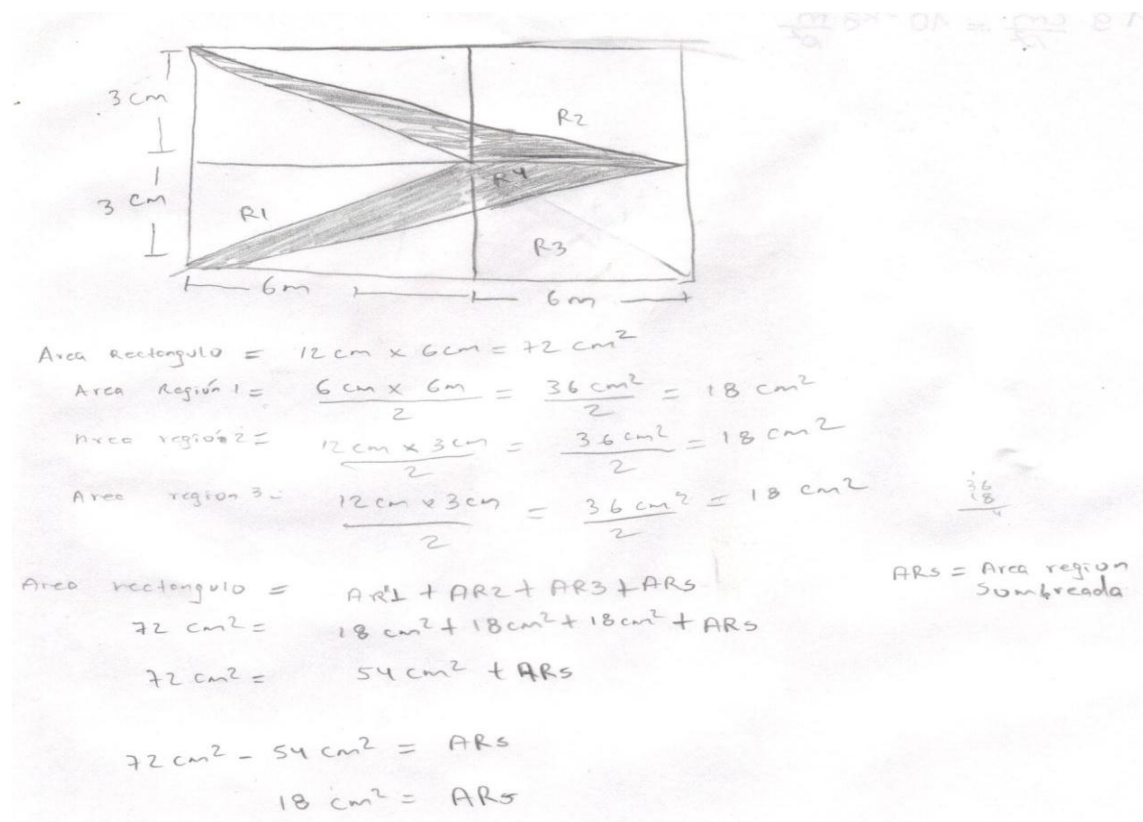 3 cm
3 cm
R2
R4
R1
R3
6m
6 m
Area Rectangulo = 12 cm x 6cm = 72 cm²
Area Región 1 = 6 cm x 6m / 2 = 36 cm² / 2 = 18 cm²
Area región 2 = 12 cm x 3 cm / 2 = 36 cm² / 2 = 18 cm²
Area region 3 = 12 cm x 3 cm / 2 = 36 cm² / 2 = 18 cm²
36
18
Area rectangulo = AR1 + AR2 + AR3 + ARs
ARs = Area region
Sombreada
72 cm² = 18 cm² + 18 cm² + 18 cm² + ARs
72 cm² = 54 cm² + ARs
72 cm² - 54 cm² = ARs
18 cm² = ARs